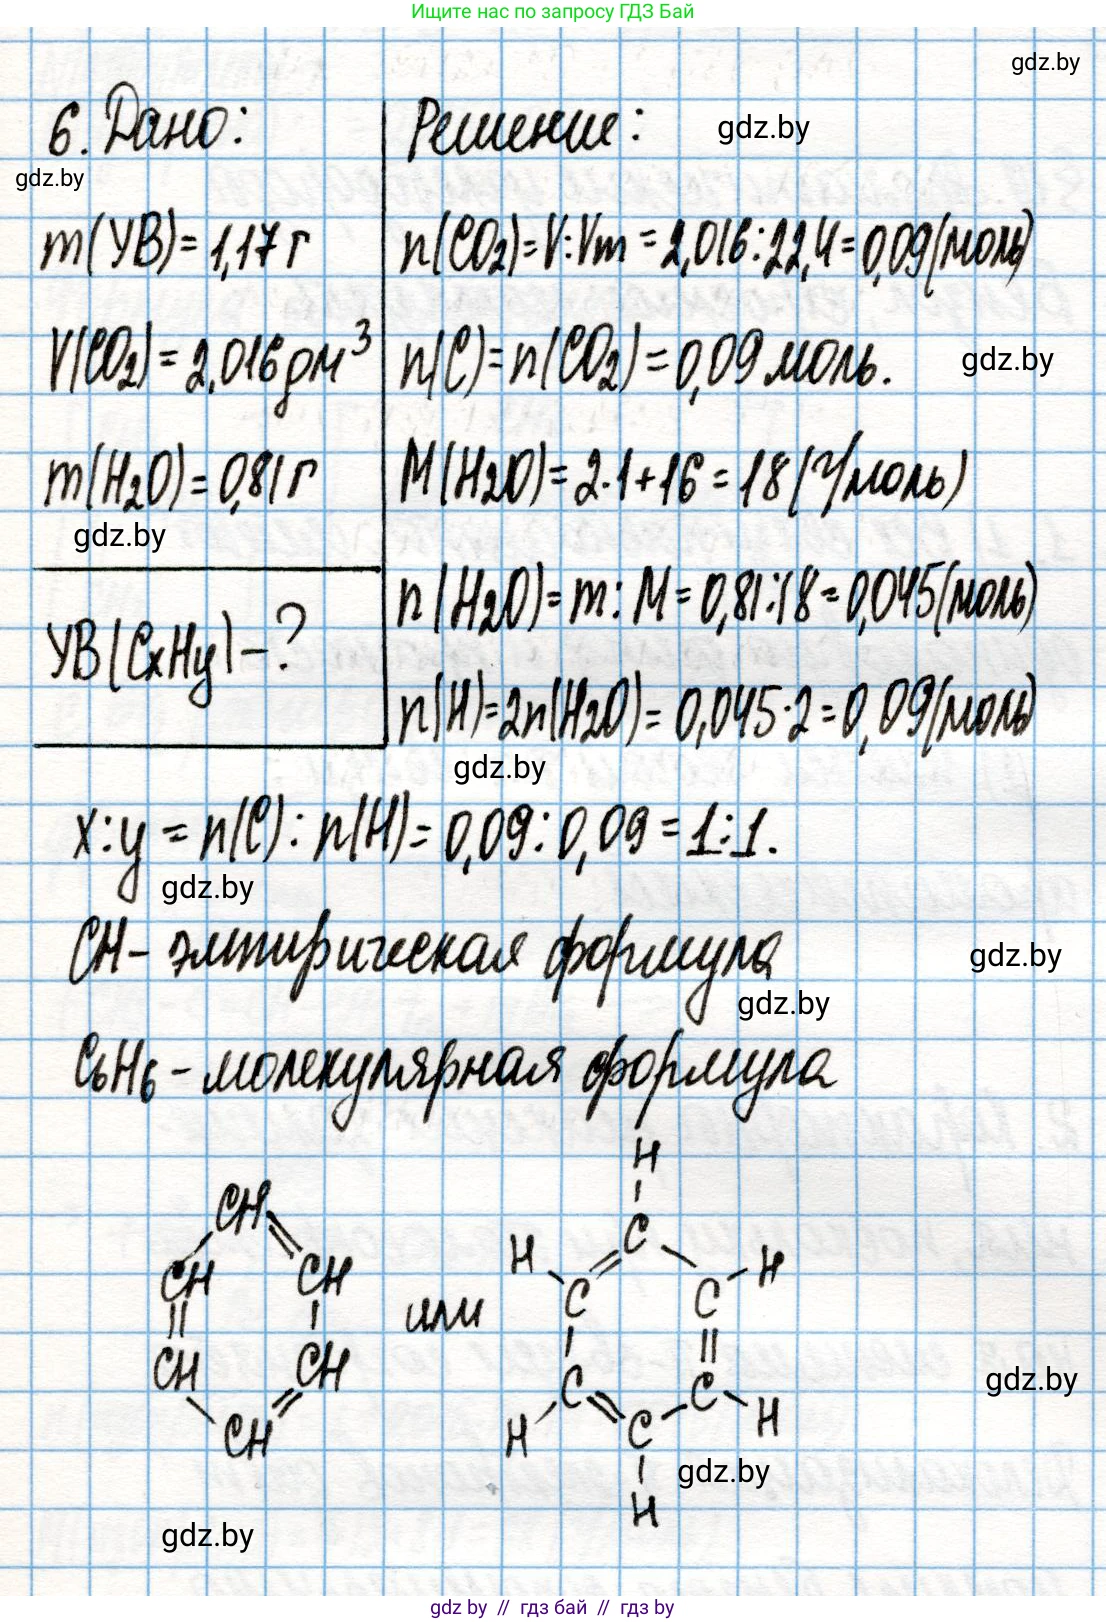 Ищите нас по запросу ГДЗ Бай
gdz.by
6. Дано:
Решение:
gdz.by
gdz.by
m(УВ)=1,17 г
n(CO2)=V:Vm=2,016:22,4=0,09(моль)
V(CO2)=2,016 дм³
n(C)=n(CO2)=0,09 моль.
gdz.by
m(H2O)=0,81 г
M(H2O)=2·1+16=18(г/моль)
gdz.by
n(H2O)=m:M=0,81:18=0,045(моль)
УВ(CxHy)-?
n(H)=2n(H2O)=0,045·2=0,09(моль)
gdz.by
x:y=n(C):n(H)=0,09:0,09=1:1.
gdz.by
CH- эмпирическая формула
gdz.by
gdz.by
C6H6-молекулярная формула
H
CH
C
H
H
CH
CH
C
C
или
CH
CH
C
C
gdz.by
CH
C
H
H
gdz.by
H
gdz.by
gdz.by // гдз бай // гдз by